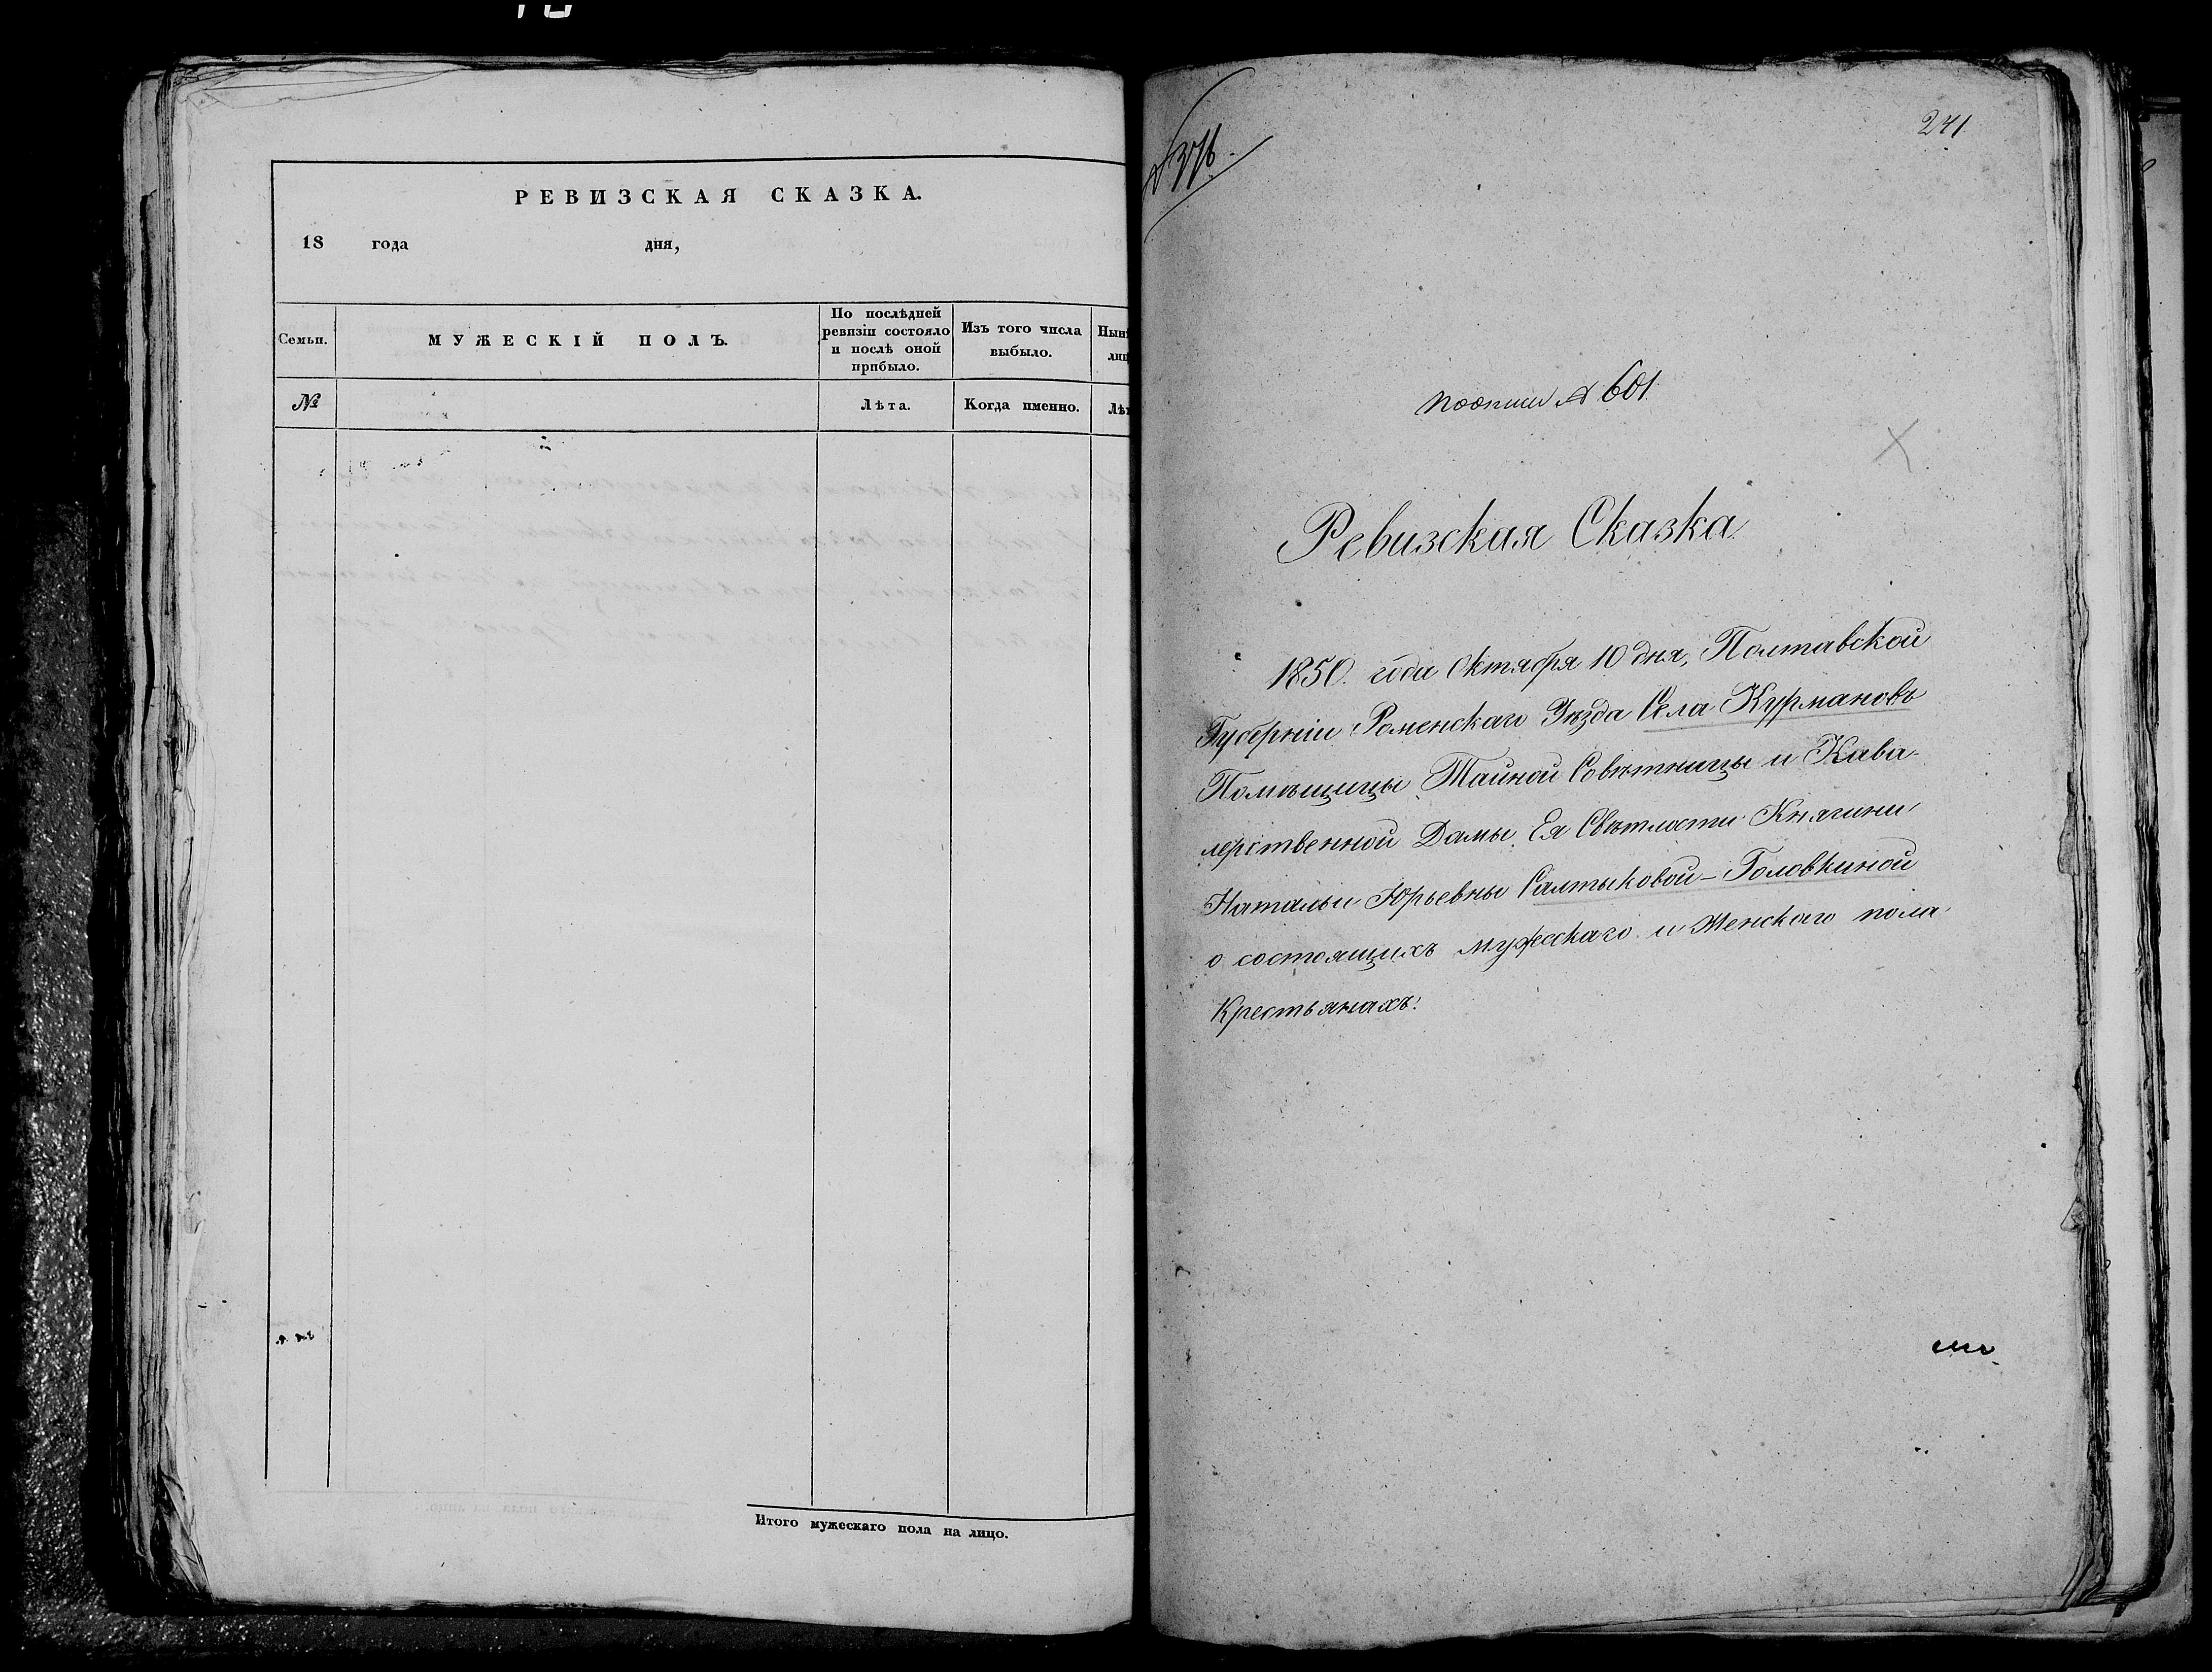 РЕВИЗСКАЯ СКАЗКА.
18 года дня,
Семьи.
МУЖЕСКІЙ ПОЛЪ.
По послѣдней
ревизіи состояло
и послѣ оной
прибыло.
Изъ того числа
выбыло.
№
Лѣта.
Когда именно.
Итого мужескаго пола на лицо.
241
По описи № 601.
Ревизская Сказка
1850. года Октября 10 дня, Полтавской
Губерніи Роменскаго Уѣзда Села Курмановъ
Помѣщицы Тайной Совѣтницы и Кава-
лерственной Дамы Ея Свѣтлости Княгини
Натальи Юрьевны Салтыковой-Головкиной
о состоящихъ мужескаго и женскаго пола
Крестьянахъ.